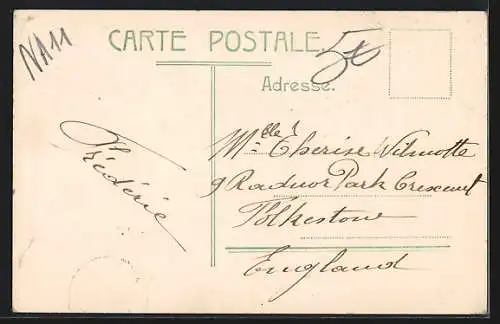 NA11
CARTE POSTALE.
50
Adresse.
Frédéric
Mlle Therise Wilmotte
9 Radnor Park Crescent
Folkestone
England